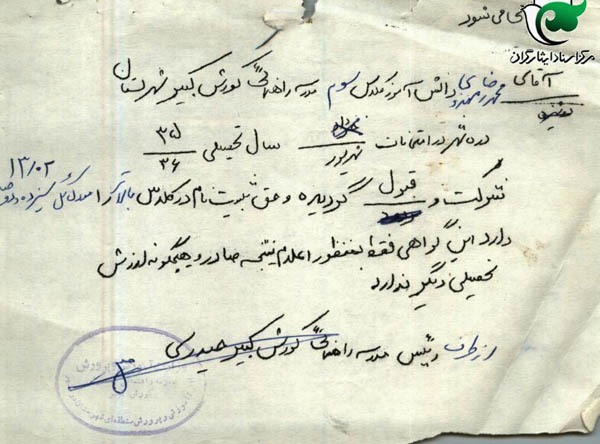 مرکز اسناد ایثارگران
می شود
آقای دانش آموز کلاس سوم مدرسه راهنمائی کورش کبیر شهرستان
دوشیزه
دره شهر در امتحانات خرداد شهریور سال تحصیلی ۳۵ ۳۶
شرکت و قبول گردیده و حق ثبت نام در کلاس بالاتر را
۱۳/۰۲
دارد این گواهی فقط بمنظور اعلام نتیجه صادر و هیچگونه ارزش
تحصیلی دیگر ندارد
از طرف رئیس مدرسه راهنمائی کورش کبیر حیدری